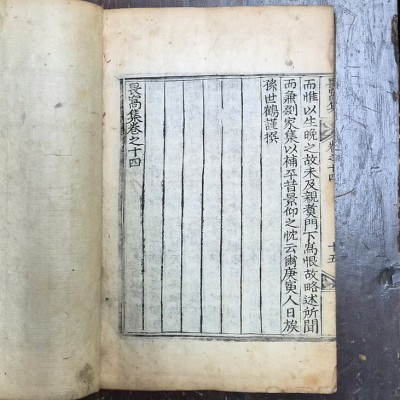 而惟以生晩之故未及親炙門下爲恨故略述所聞
而兼刻家集以補平昔景仰之忱云爾庚寅人日族
孫世鶴謹撰
畏窩集卷之十四
卷之十四
十五